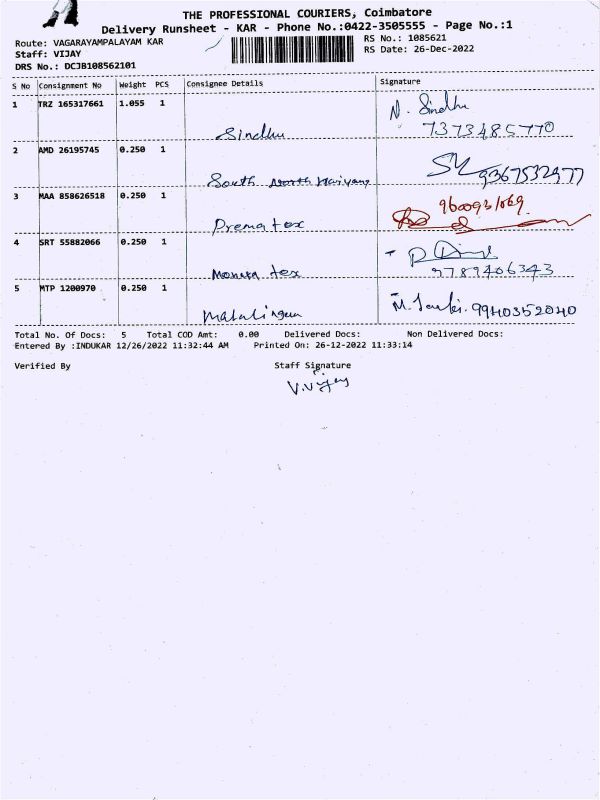 THE PROFESSIONAL COURIERS, Coimbatore
Delivery Runsheet - KAR - Phone No.:0422-3505555 - Page No.:1
Route: VAGARAYAMPALAYAM KAR
RS No.: 1085621
Staff: VIJAY
RS Date: 26-Dec-2022
DRS No.: DCJB108562101
S No Consignment No Weight PCS Consignee Details Signature
1 TRZ 165317661 1.055 1
N. Sindhu
Sindhu 7373485770
2 AMD 26195745 0.250 1
South North 9367532977
3 MAA 858626518 0.250 1
Prema tex
4 SRT 55882066 0.250 1
tex 9789406343
5 MTP 1200970 0.250 1
M. 9940352040
Total No. Of Docs: 5 Total COD Amt: 0.00 Delivered Docs: Non Delivered Docs:
Entered By :INDUKAR 12/26/2022 11:32:44 AM Printed On: 26-12-2022 11:33:14
Verified By Staff Signature
V.Vijay